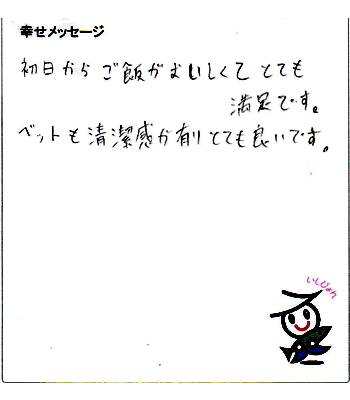 幸せメッセージ
初日からご飯がおいしくて とても
満足です。
ベットも清潔感が有りとても良いです。